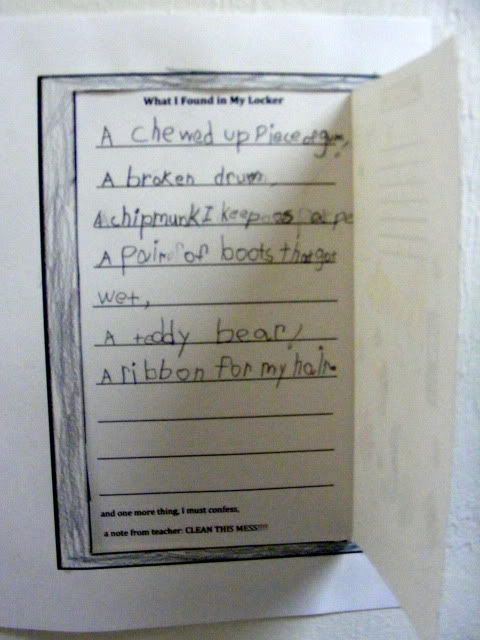 What I Found in My Locker
A chewed up Piece of gum,
A broken drum,
A chipmunk I keep as pe
A Pair of boots that got
wet,
A teddy bear,
A ribbon for my hair.
and one more thing, I must confess,
a note from teacher: CLEAN THIS MESS!!!!